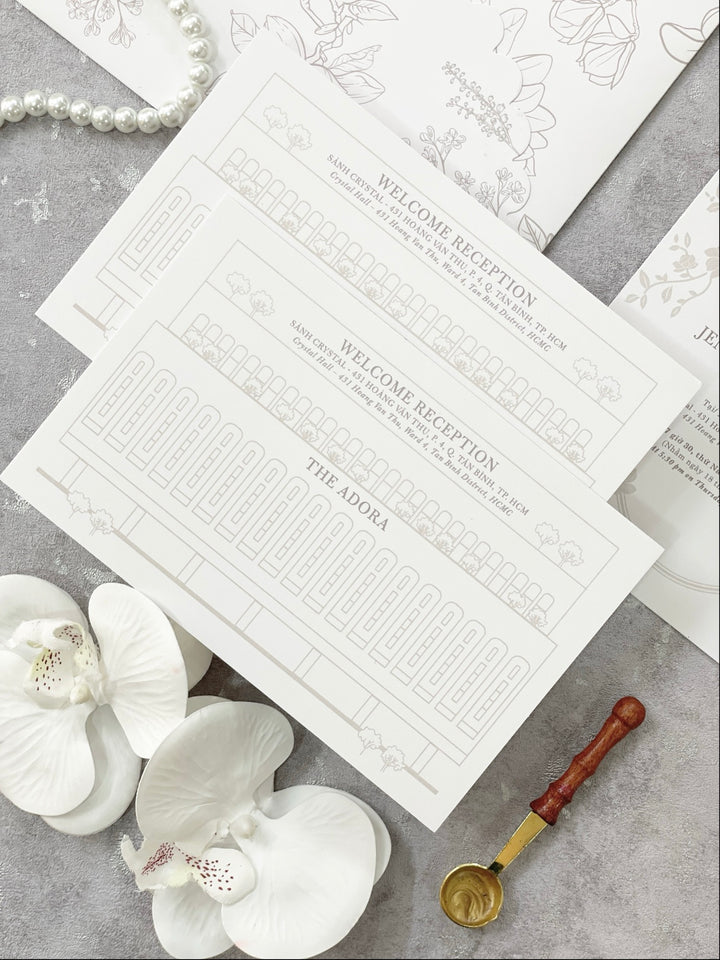 WELCOME RECEPTION
SẢNH CRYSTAL - 431 HOÀNG VĂN THỤ, P. 4, Q. TÂN BÌNH, TP. HCM
Crystal Hall - 431 Hoang Van Thu, Ward 4, Tan Binh District, HCMC
WELCOME RECEPTION
SẢNH CRYSTAL - 431 HOÀNG VĂN THỤ, P. 4, Q. TÂN BÌNH, TP. HCM
Crystal Hall - 431 Hoang Van Thu, Ward 4, Tan Binh District, HCMC
THE ADORA
7 giờ 30, thứ
(Nhằm ngày 18
At 5:30 pm on